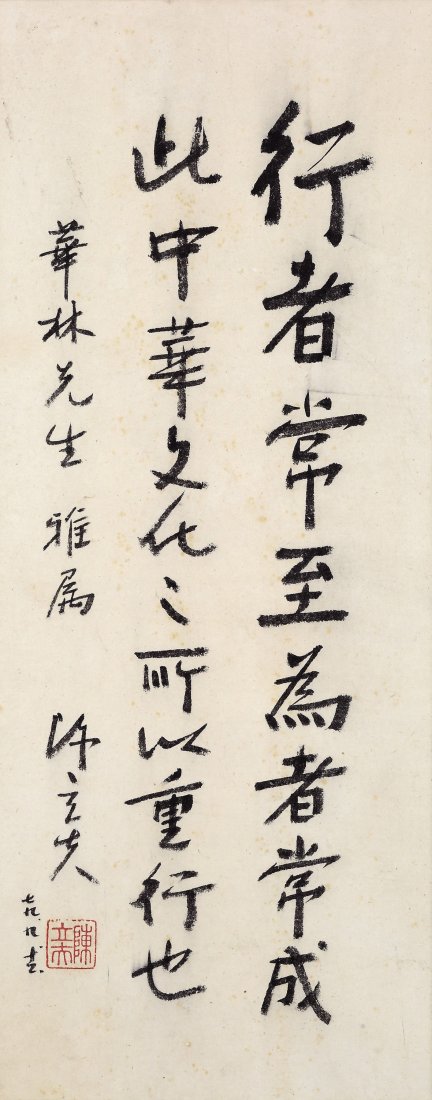 行者常至為者常成
此中華文化之所以重行也
華林先生 雅屬
陳立夫
陳立夫